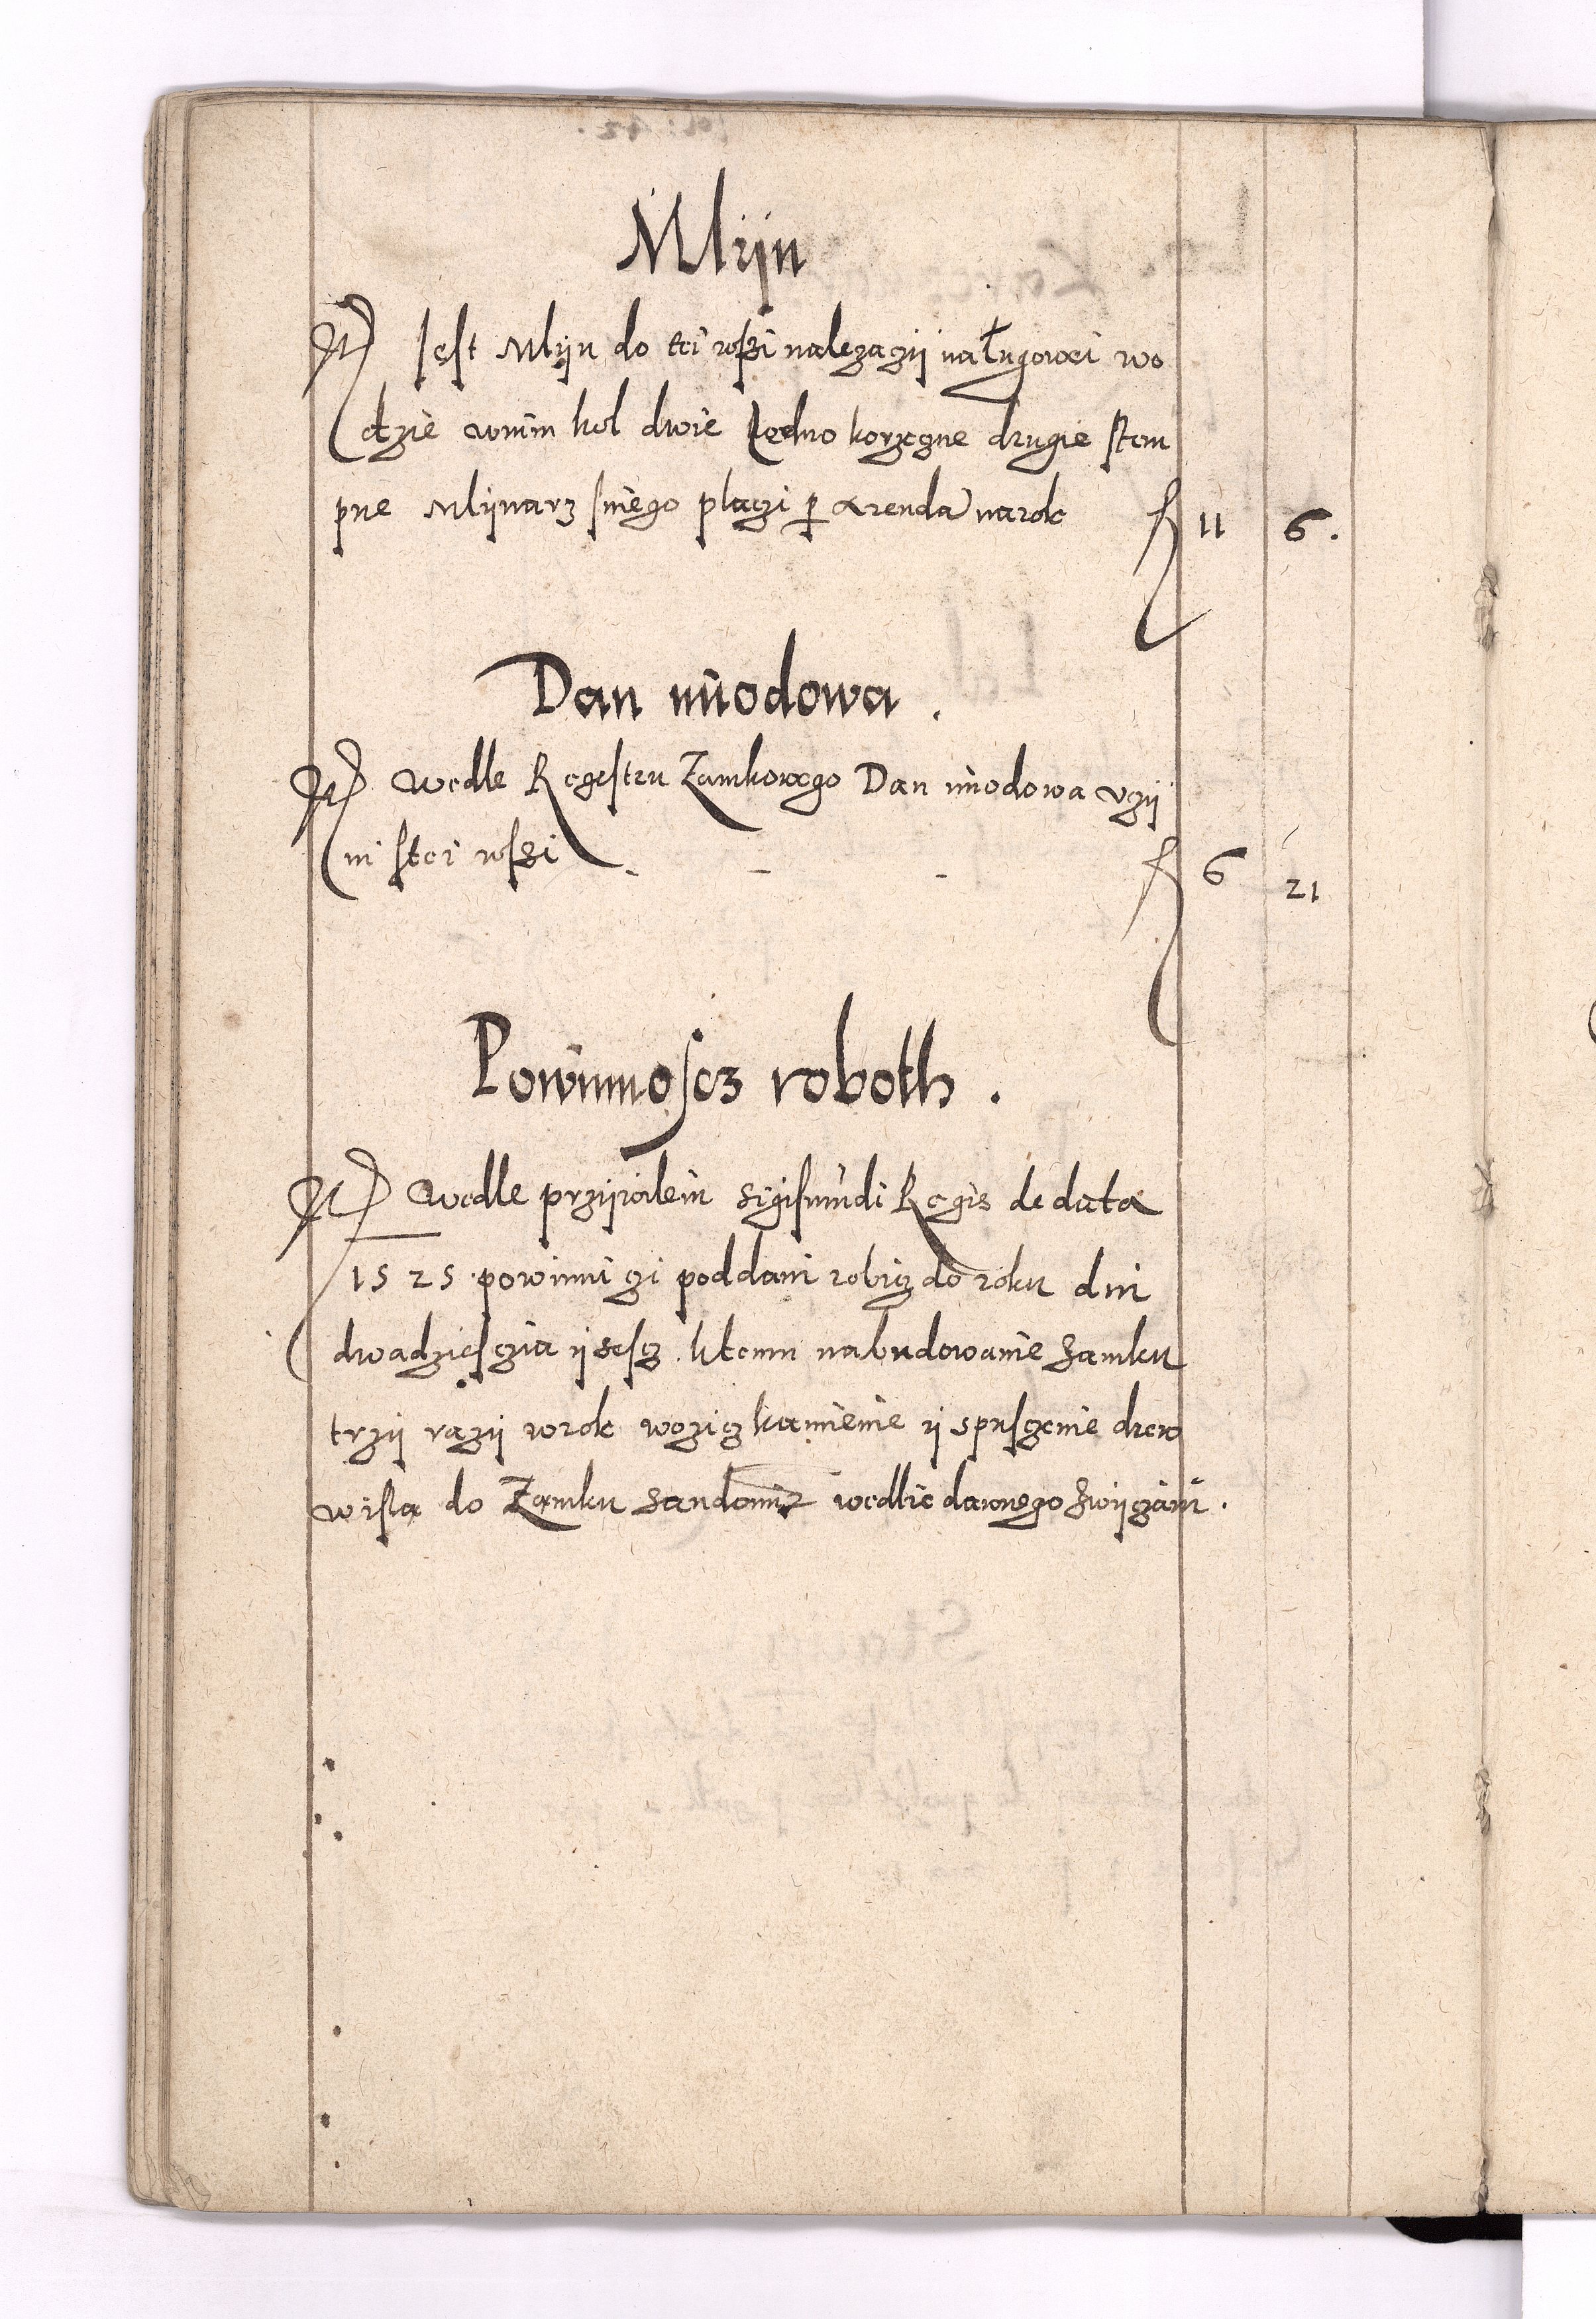 Mlÿn
Jt Jest Mlÿn do tei wssi nalezaczÿ na Ługowei wo
dzie wnim kol dwie Jedno korzeczne drugie stem
pne Mlÿnarz sniego placzi per arenda narok f 11 6.
Dan miodowa.
Jt wedle Regestru Zamkowego Dan miodowa vczÿ
ni stei wssi - - - f 6 21
Powinnoscz roboth.
Jt wedle przÿwileiu Sigismundi Regis de data
1525 powinni czi poddani robicz do roku dni
dwadziesczia ÿ sescz. ktemu nabudowanie Zamku
trzÿ razÿ wrok wozicz kamienie ÿ spusczenie drew
wisla do Zamku Sandomir wedlie dawnego zwÿczaiu.